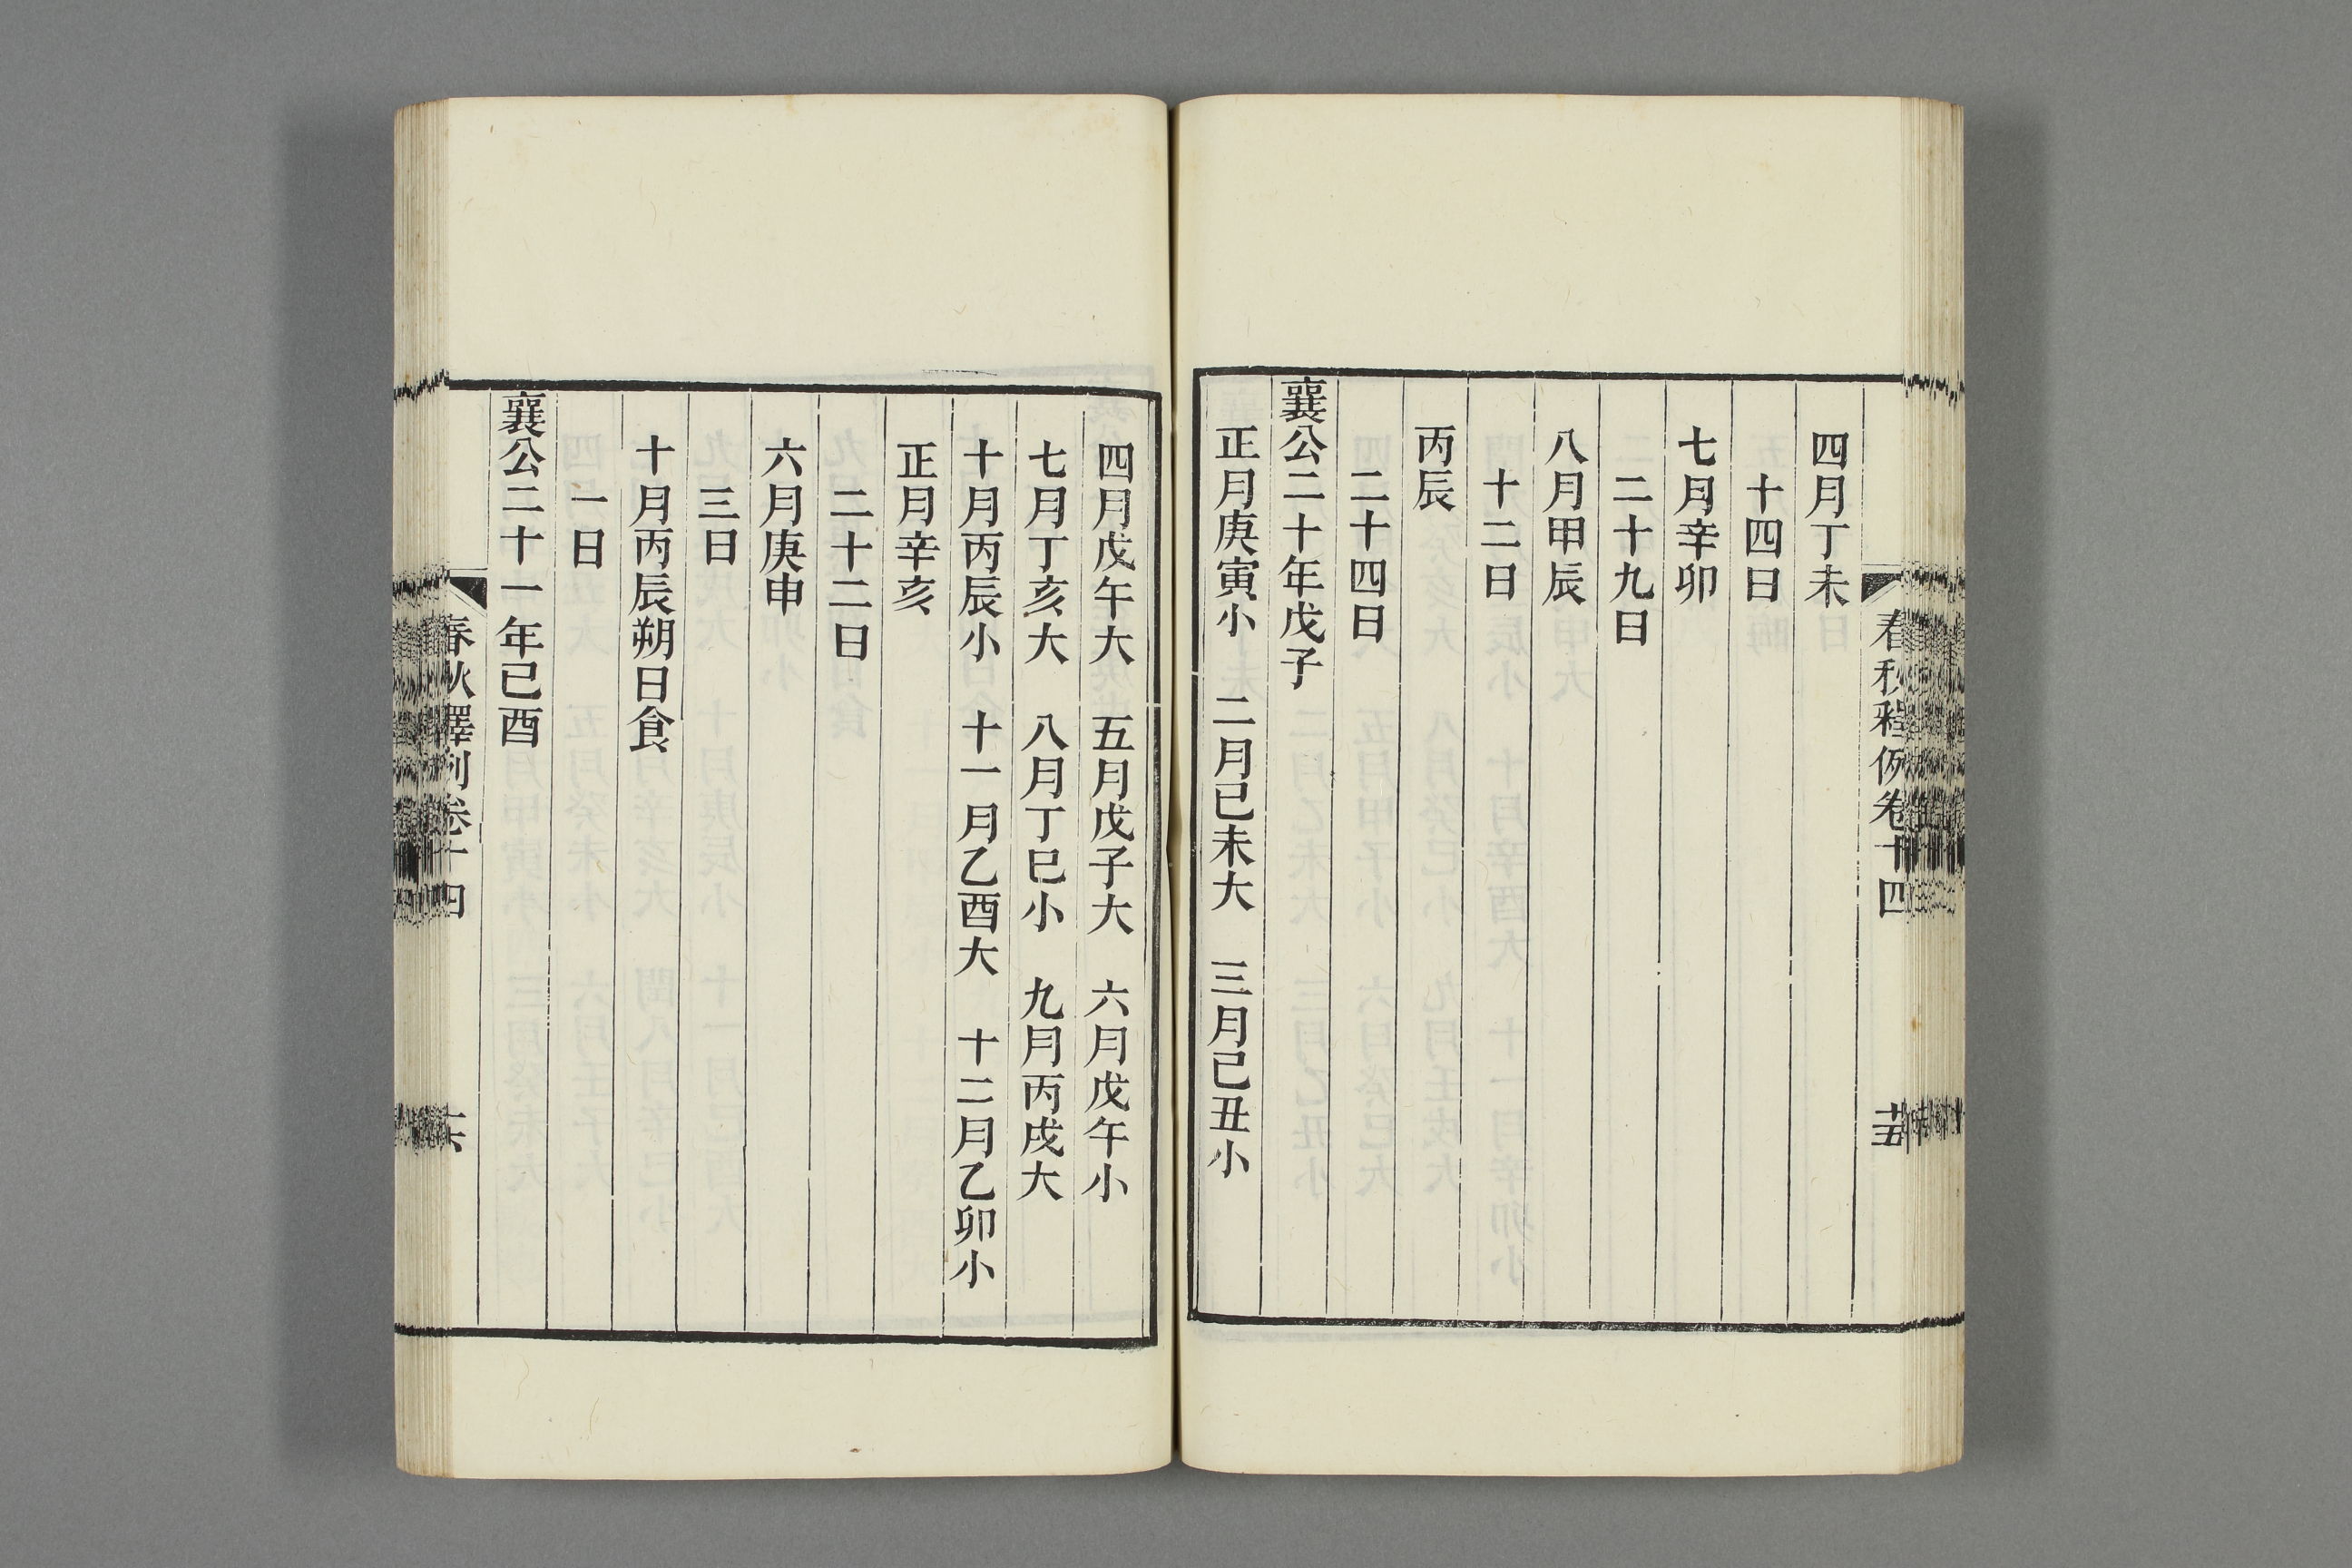 春秋釋例卷十四
四月丁未
十四日
七月辛卯
二十九日
八月甲辰
十二日
丙辰
二十四日
襄公二十年戊子
正月庚寅小　二月己未大　三月己丑小
四月戊午大　五月戊子大　六月戊午小
七月丁亥大　八月丁巳小　九月丙戌大
十月丙辰小　十一月乙酉大　十二月乙卯小
正月辛亥
二十二日
六月庚申
三日
十月丙辰朔日食
一日
襄公二十一年己酉
春秋釋例卷十四